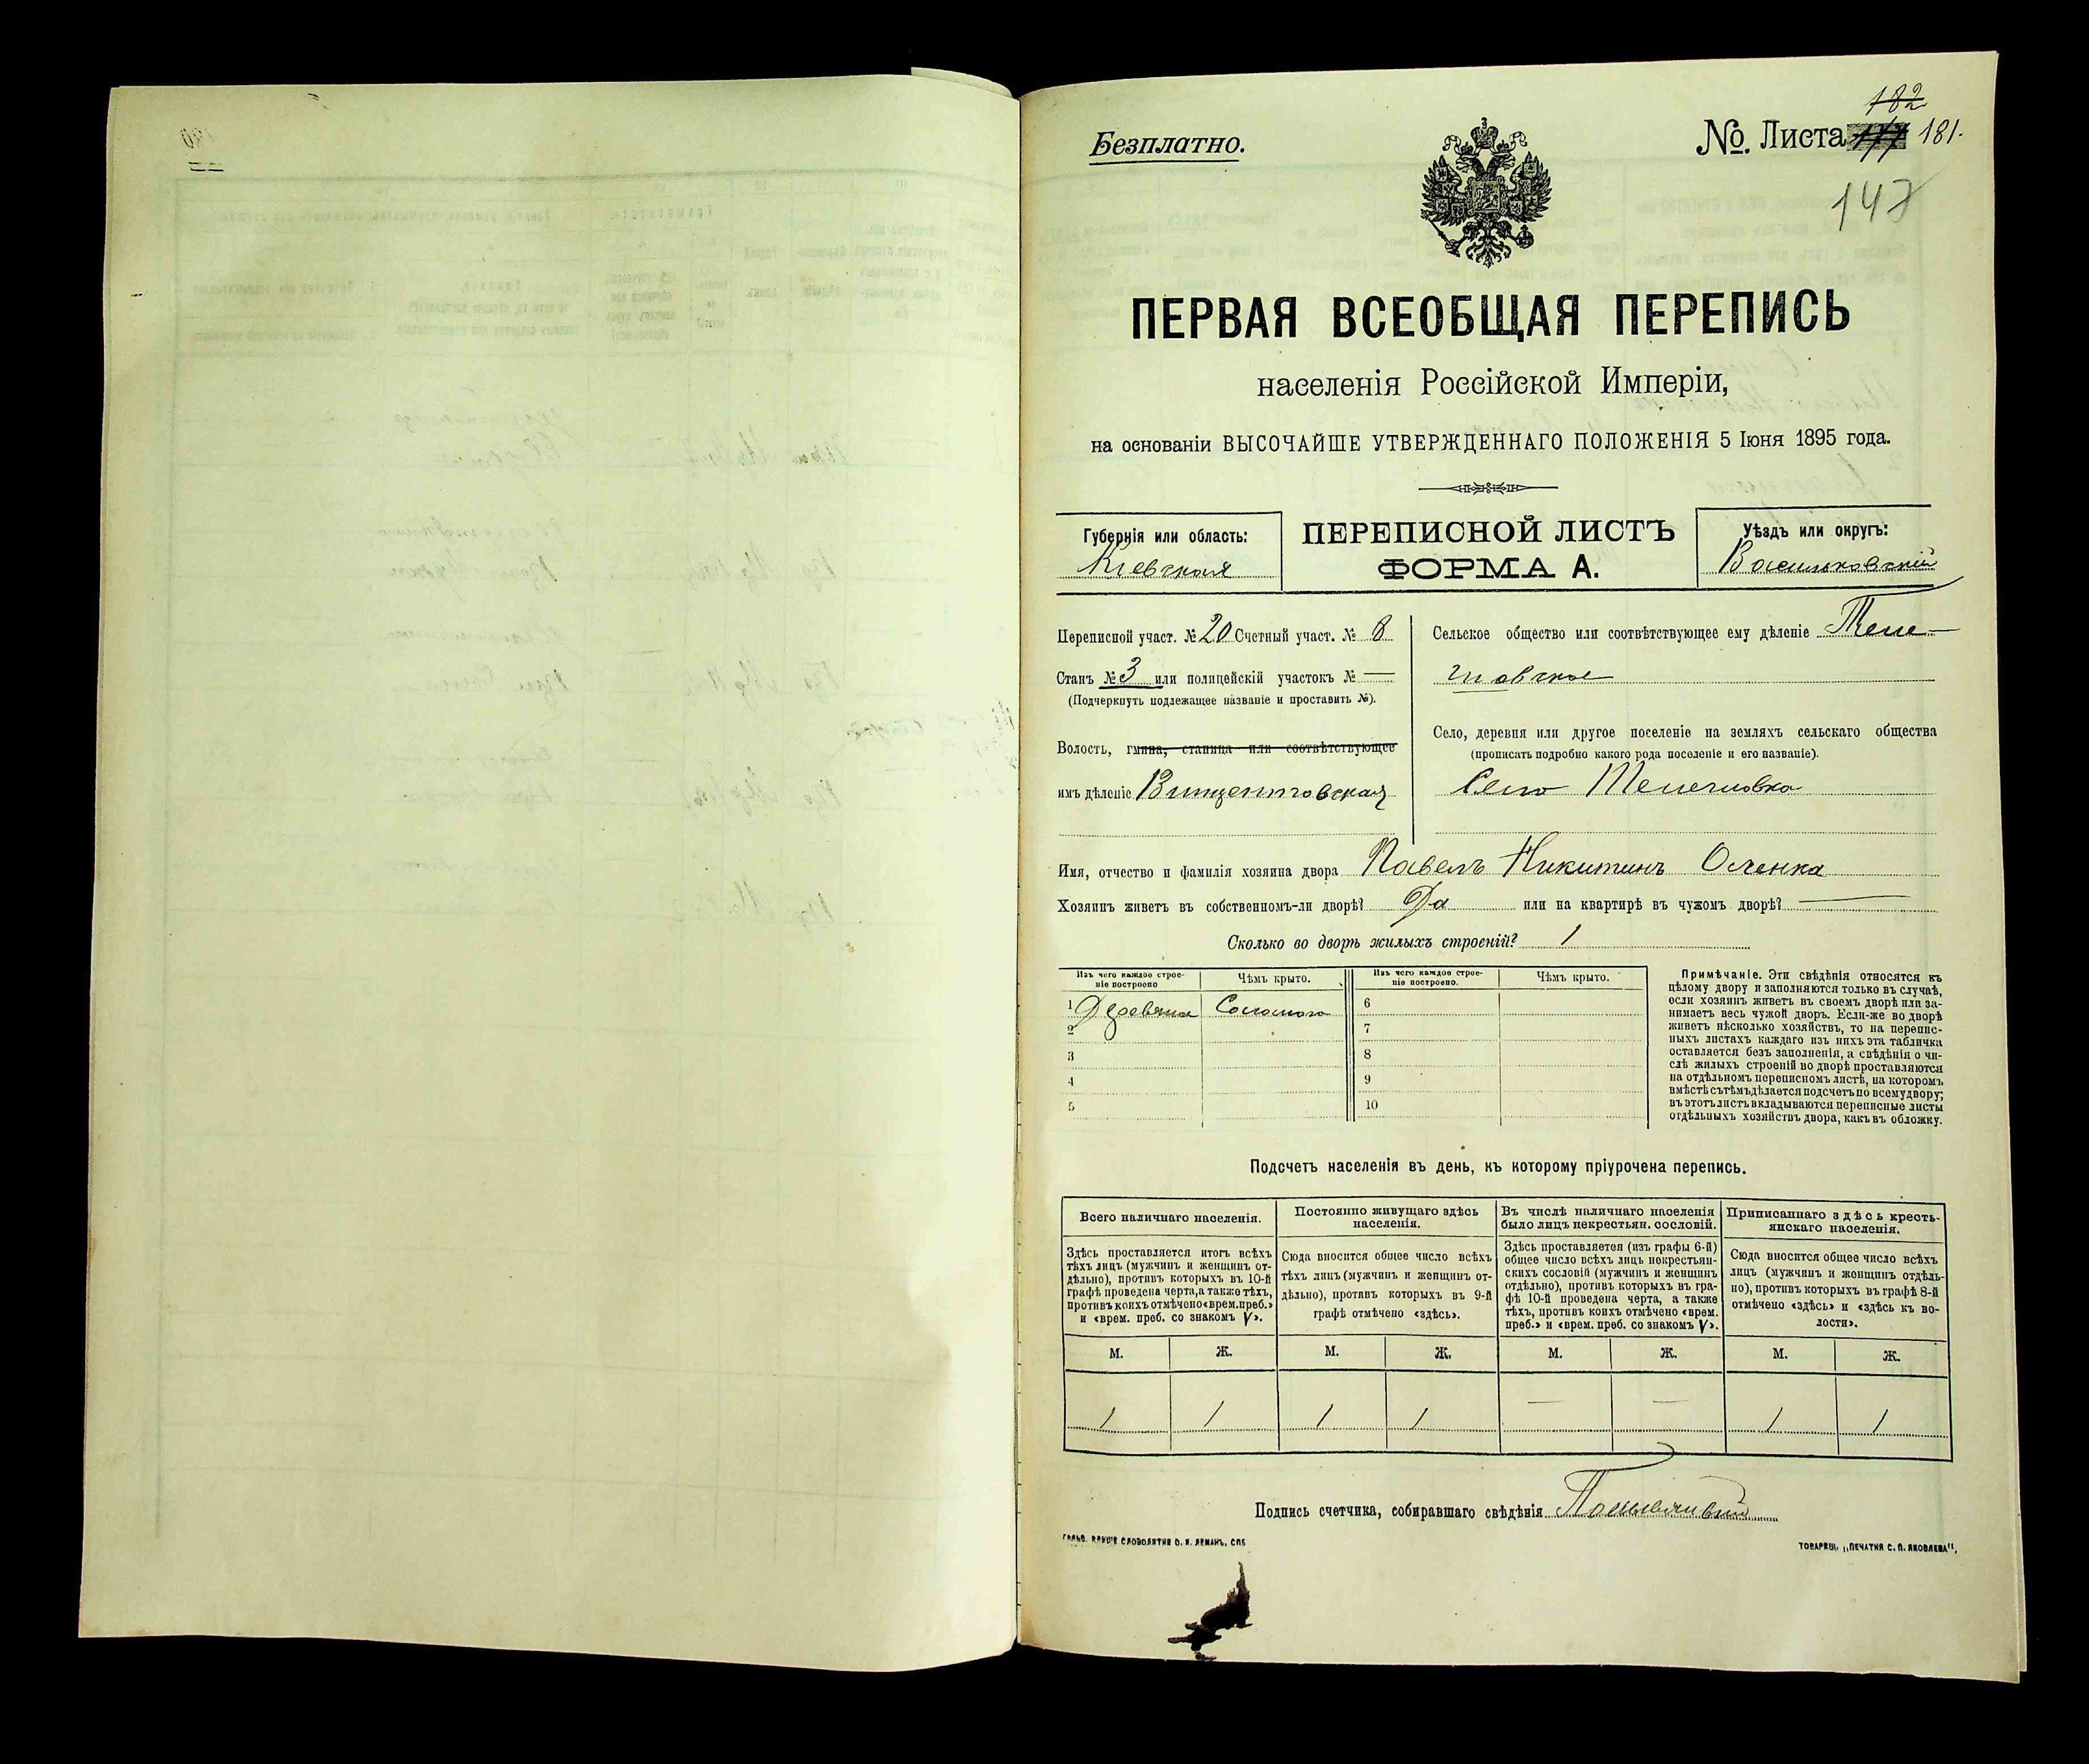 Безплатно.
182
№. Листа 177 181.
147
ПЕРВАЯ ВСЕОБЩАЯ ПЕРЕПИСЬ
населенія Россійской Имперіи,
на основаніи ВЫСОЧАЙШЕ УТВЕРЖДЕННАГО ПОЛОЖЕНІЯ 5 Іюня 1895 года.
Губернія или область:
Кіевская
ПЕРЕПИСНОЙ ЛИСТЪ
ФОРМА А.
Уѣздъ или округъ:
Васильковскій
Переписной участ. № 20 Счетный участ. № 8
Станъ № 3 или полицейскій участокъ № —
(Подчеркнуть подлежащее названіе и проставить №).
Волость, гмина, станица или соотвѣтствующее
имъ дѣленіе Винцентовская
Сельское общество или соотвѣтствующее ему дѣленіе
Село, деревня или другое поселеніе на земляхъ сельскаго общества
(прописать подробно какого рода поселеніе и его названіе).
Село
Имя, отчество и фамилія хозяина двора Павелъ Никитинъ
Хозяинъ живетъ въ собственномъ-ли дворѣ? Да или на квартирѣ въ чужомъ дворѣ? —
Сколько во дворѣ жилыхъ строеній? 1
Изъ чего каждое строе-
ніе построено
Чѣмъ крыто.
Изъ чего каждое строе-
ніе построено.
Чѣмъ крыто.
1 6
2 7
3 8
4 9
5 10
Примѣчаніе. Эти свѣдѣнія относятся къ
цѣлому двору и заполняются только въ случаѣ,
если хозяинъ живетъ въ своемъ дворѣ или за-
нимаетъ весь чужой дворъ. Если-же во дворѣ
живетъ нѣсколько хозяйствъ, то на перепис-
ныхъ листахъ каждаго изъ нихъ эта табличка
оставляется безъ заполненія, а свѣдѣнія о чи-
слѣ жилыхъ строеній во дворѣ проставляются
на отдѣльномъ переписномъ листѣ, на которомъ
вмѣстѣ съ тѣмъ дѣлается подсчетъ по всему двору;
въ этотъ листъ вкладываются переписные листы
отдѣльныхъ хозяйствъ двора, какъ въ обложку.
Подсчетъ населенія въ день, къ которому пріурочена перепись.
Всего наличнаго населенія.
Здѣсь проставляется итогъ всѣхъ
тѣхъ лицъ (мужчинъ и женщинъ от-
дѣльно), противъ которыхъ въ 10-й
графѣ проведена черта, а также тѣхъ,
противъ коихъ отмѣчено «врем. преб.»
и «врем. преб. со знакомъ V».
Постоянно живущаго здѣсь
населенія.
Сюда вносится общее число всѣхъ
тѣхъ лицъ (мужчинъ и женщинъ от-
дѣльно), противъ которыхъ въ 9-й
графѣ отмѣчено «здѣсь».
Въ числѣ наличнаго населенія
было лицъ некрестьян. сословій.
Здѣсь проставляется (изъ графы 6-й)
общее число всѣхъ лицъ некрестьян-
скихъ сословій (мужчинъ и женщинъ
отдѣльно), противъ которыхъ въ гра-
фѣ 10-й проведена черта, а также
тѣхъ, противъ коихъ отмѣчено «врем.
преб.» и «врем. преб. со знакомъ V».
Приписаннаго здѣсь кресть-
янскаго населенія.
Сюда вносится общее число всѣхъ
лицъ (мужчинъ и женщинъ отдѣль-
но), противъ которыхъ въ графѣ 8-й
отмѣчено «здѣсь» и «здѣсь въ во-
лости».
М. Ж. М. Ж. М. Ж. М. Ж.
1 1 1 1 — — 1 1
Подпись счетчика, собиравшаго свѣдѣнія
СЛОВОЛИТНЯ О. И. ЛЕМАНЪ, СПБ
ТОВАРИЩ. „ПЕЧАТНЯ С. П. ЯКОВЛЕВА".